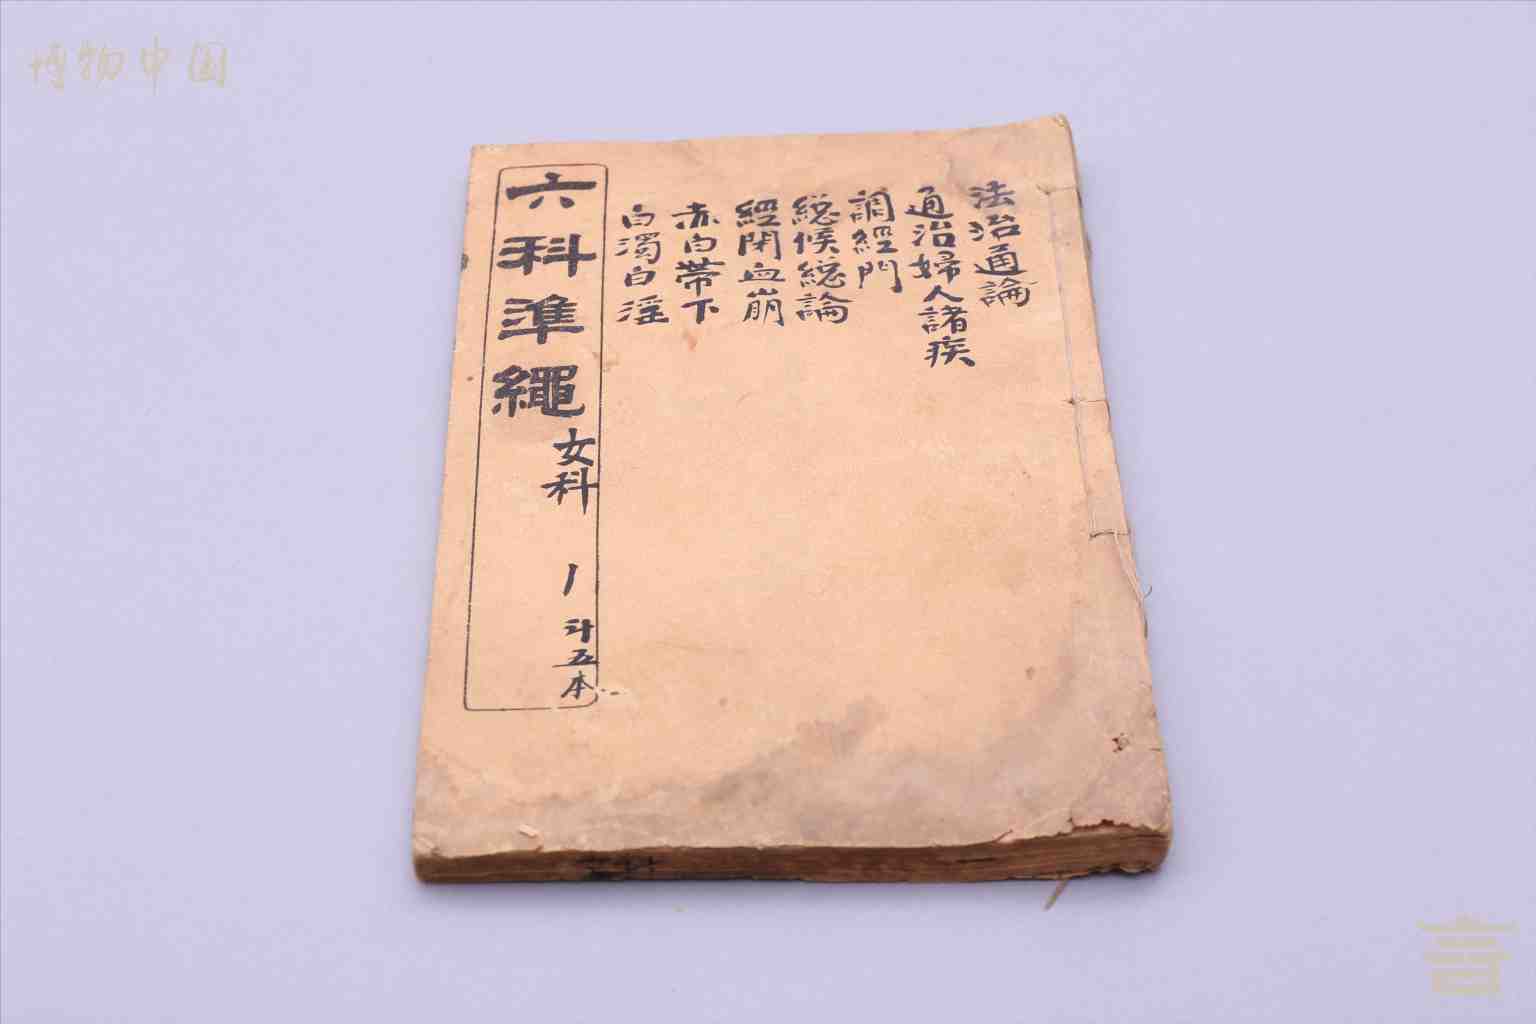 博物中国
法治通論
通治婦人諸疾
調經門
総候総論
經閉血崩
赤白帶下
白濁白淫
六科準繩
女科
五本